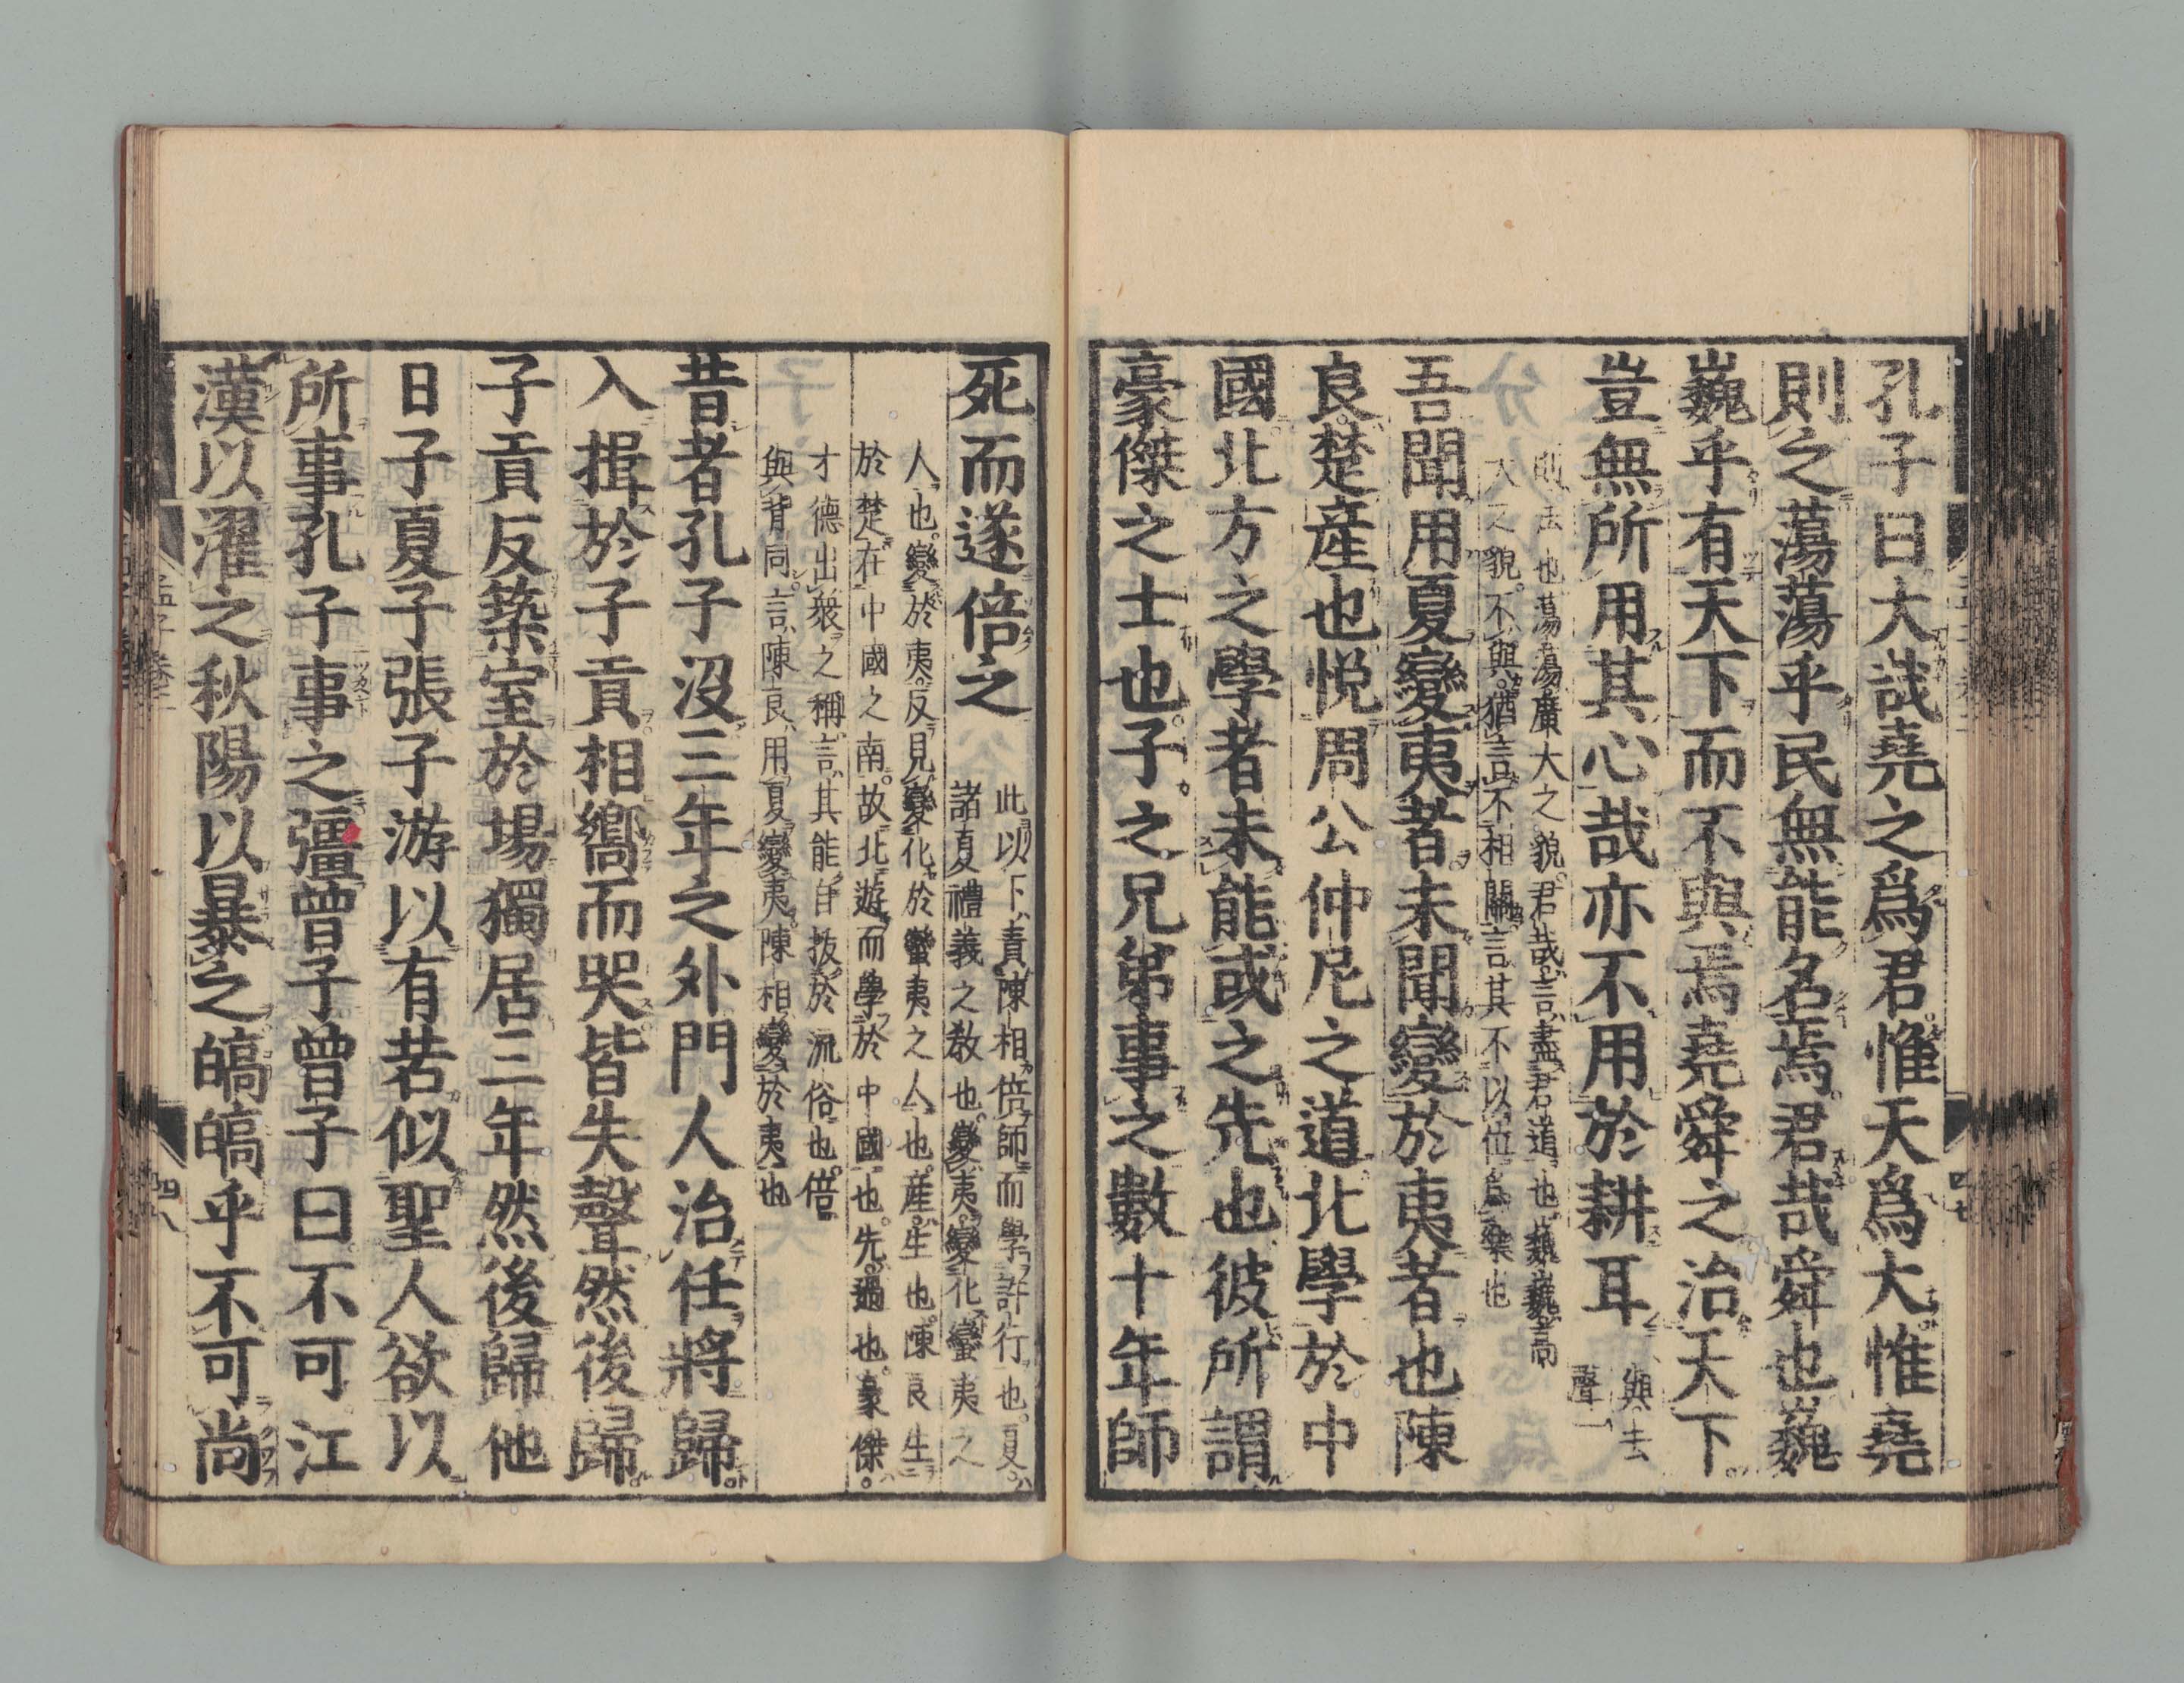 孔子曰大哉堯之爲君惟天爲大惟堯
則之蕩蕩乎民無能名焉君哉舜也巍
巍乎有天下而不與焉堯舜之治天下
豈無所用其心哉亦不用於耕耳
與去
聲
則法也蕩蕩廣大之貌君哉言盡君道也巍巍高
大之貌不與猶言不相關言其不以位爲樂也
吾聞用夏變夷者未聞變於夷者也陳
良楚產也悦周公仲尼之道北學於中
國北方之學者未能或之先也彼所謂
豪傑之士也子之兄弟事之數十年師
死而遂倍之
此以下責陳相倍師而學許行也夏
諸夏禮義之教也變夷變化蠻夷之
人也變於夷反見變化於蠻夷之人也產生也陳良生
於楚在中國之南故北遊而學於中國也先過也豪傑
才德出衆之稱言其能自拔於流俗也倍
與背同言陳良用夏變夷陳相變於夷也
昔者孔子沒三年之外門人治任將歸
入揖於子貢相嚮而哭皆失聲然後歸
子貢反築室於場獨居三年然後歸他
日子夏子張子游以有若似聖人欲以
所事孔子事之彊曾子曾子曰不可江
漢以濯之秋陽以暴之皜皜乎不可尚
孟子卷二
四八
四七